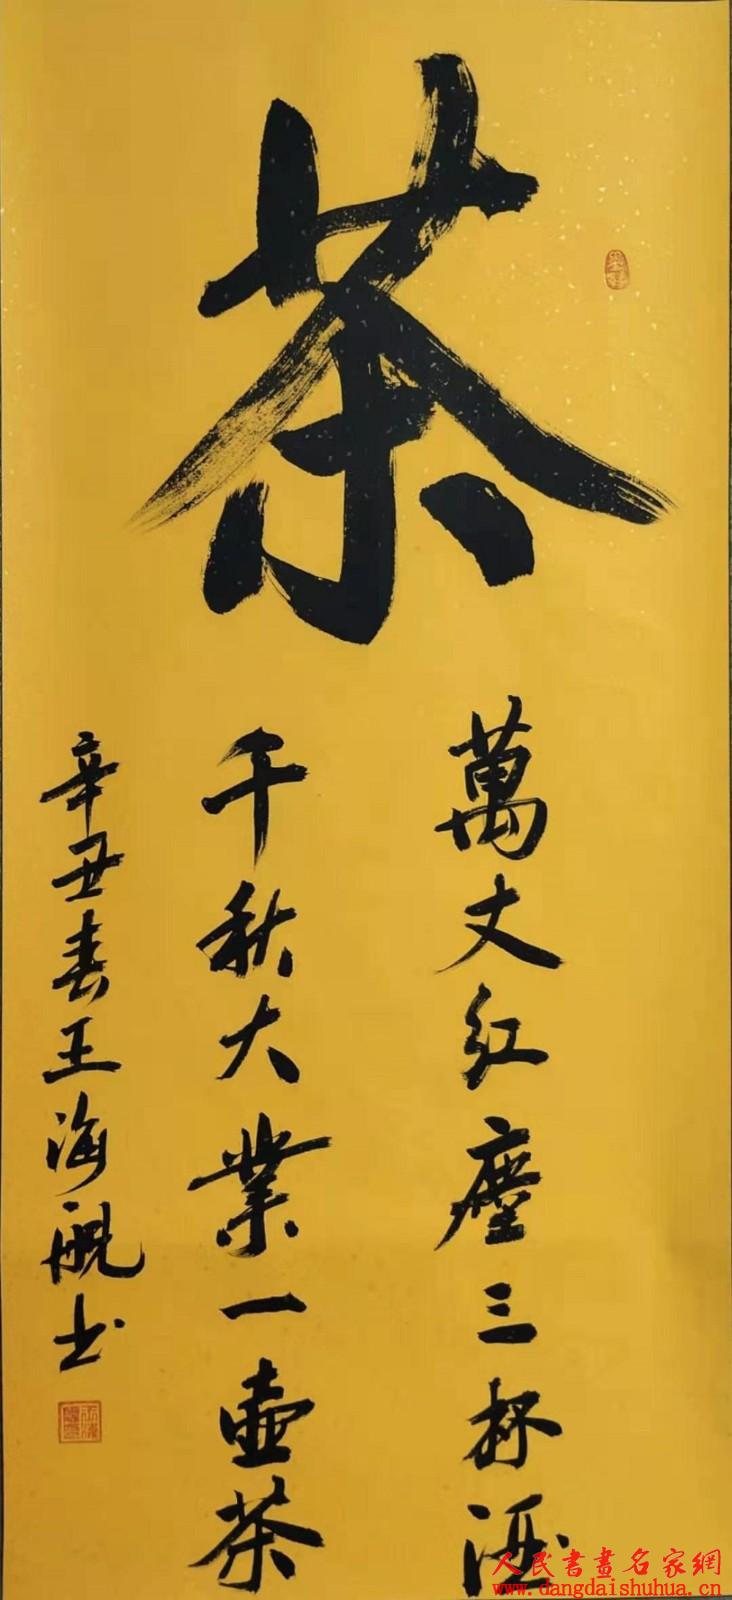 茶
萬丈红塵三杯酒
千秋大業一壺茶
辛丑春王海舰书
人民書畫名家網
www.dangdaishuhua.cn